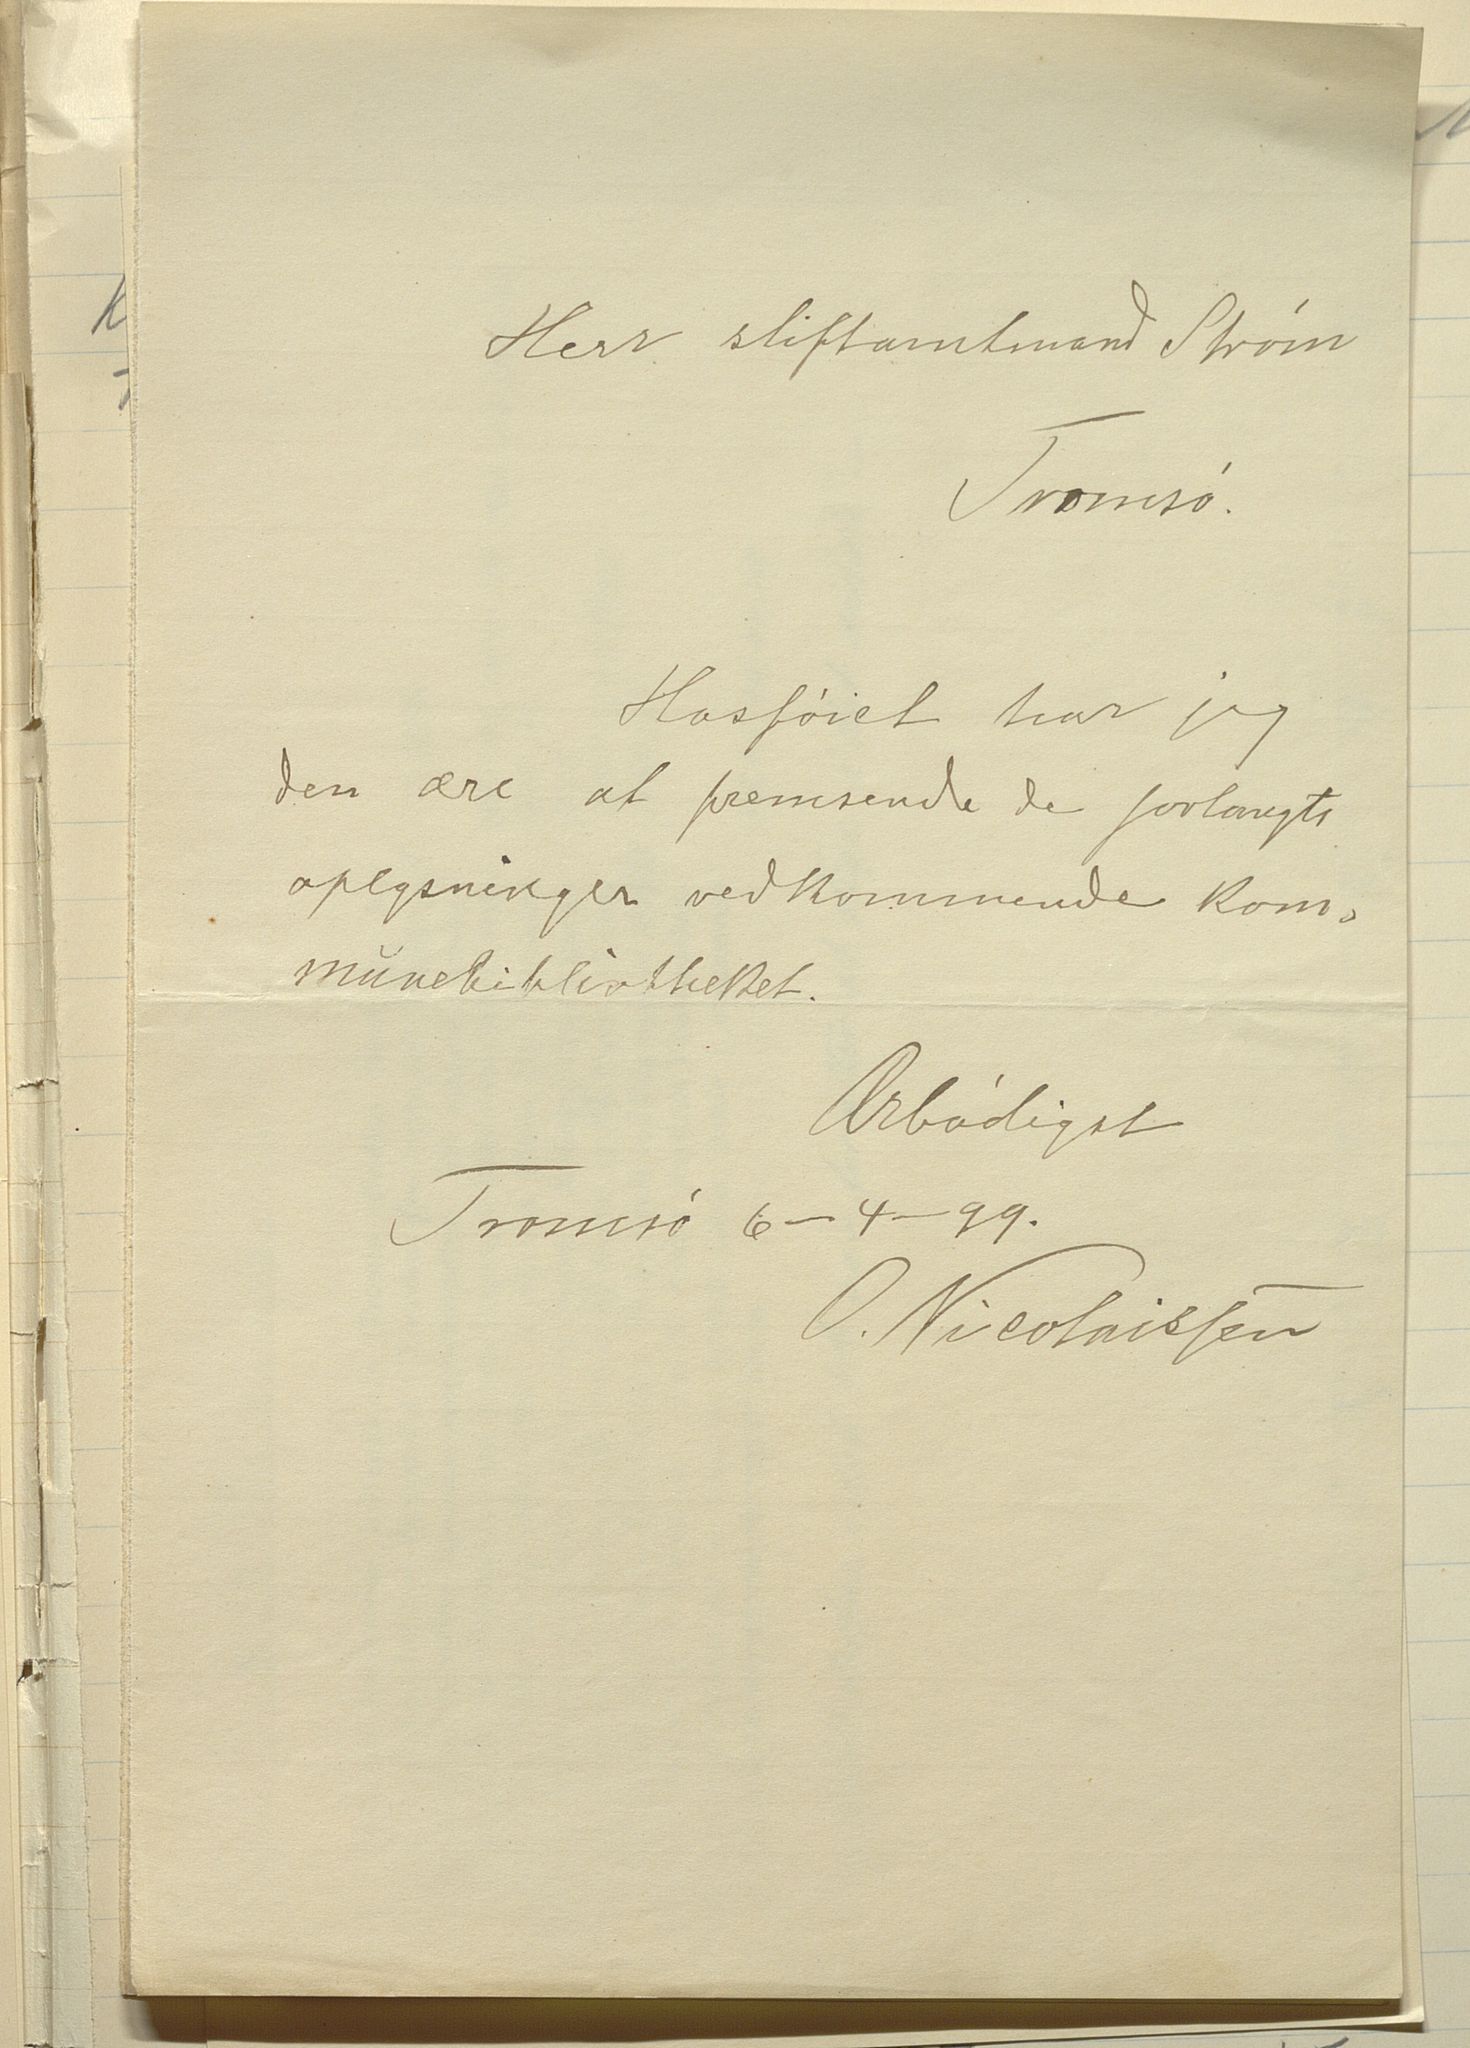 Herr stiftamtmand Strøm
Tromsø.
Hosføiet har jeg
den ære at fremsende de forlangte
oplysninger vedkommende kom-
munebibliotheket.
Ærbødigst
Tromsø 6-4-99.
O. Nicolaissen